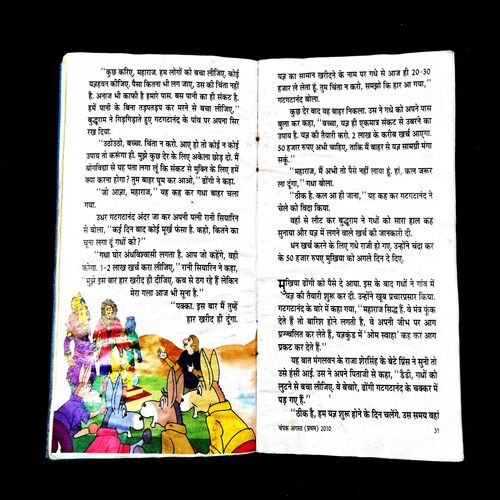 "कुछ करिए, महाराज. हम लोगों को बचा लीजिए. कोई
यज्ञहवन कीजिए. पैसा कितना भी लग जाए, उस की चिंता नहीं
है. अनाज भी काफी है हमारे पास. बस पानी का ही संकट है.
हमें पानी के बिना तड़पतड़प कर मरने से बचा लीजिए,"
बुद्धूराम ने गिड़गिड़ाते हुए गटगटानंद के पांव पर अपना सिर
रख दिया.
"उठोउठो, बच्चा. चिंता न करो. आए हो तो कोई न कोई
उपाय तो करूंगा ही. मुझे कुछ देर के लिए अकेला छोड़ दो. मैं
योगविद्या से यह पता लगा लूं कि संकट से मुक्ति के लिए हमें
क्या करना होगा? तुम बाहर घूम कर आओ," ढोंगी ने कहा.
"जो आज्ञा, महाराज," यह कह कर गधा बाहर चला
गया.
उधर गटगटानंद अंदर जा कर अपनी पत्नी रानी सियारिन
से बोला, "कई दिन बाद कोई मूर्ख फंसा है. कहो, कितने का
चूना लगा दूं गधों को?"
"गधा घोर अंधविश्वासी लगता है. आप जो कहेंगे, वही
करेगा. 1-2 लाख खर्च करा लीजिए," रानी सियारिन ने कहा,
"मुझे इस बार हार खरीद ही दीजिए. कब से ठग रहे हैं लेकिन
मेरा गला आज भी सूना है."
"पक्का. इस बार मैं तुम्हें
हार खरीद ही दूंगा.
यज्ञ का सामान खरीदने के नाम पर गधे से आज ही 20-30
हजार ले लेता हूं. तुम चिंता न करो, समझो कि हार आ गया,"
गटगटानंद बोला.
कुछ देर बाद वह बाहर निकला. उस ने गधे को अपने पास
बुला कर कहा, "बच्चा, यज्ञ ही एकमात्र संकट से उबरने का
उपाय है. यज्ञ की तैयारी करो. 2 लाख के करीब खर्च आएगा.
50 हजार रुपए अभी चाहिए, ताकि मैं बाहर से यज्ञ सामग्री मंगा
सकूं."
"महाराज, मैं अभी तो पैसे नहीं लाया हूं. हां, कल जरूर
ला दूंगा," गधा बोला.
"ठीक है. कल आ ही जाना," यह कह कर गटगटानंद ने
चेले को विदा किया.
वहां से लौट कर बुद्धूराम ने गधों को सारा हाल कह
सुनाया और यज्ञ में लगने वाले खर्च की जानकारी दी.
धन खर्च करने के लिए गधे राजी हो गए. उन्होंने चंदा कर
के 50 हजार रुपए मुखिया को अगले दिन दे दिए.
मुखिया ढोंगी को पैसे दे आया. इस के बाद गधों ने गांव में
यज्ञ की तैयारी शुरू कर दी. उन्होंने खूब प्रचारप्रसार किया.
गटगटानंद के बारे में कहा गया, "महाराज सिद्ध हैं. वे मंत्र फूंक
देते हैं तो बारिश होने लगती है, वे अपनी जीभ पर आग
प्रज्ज्वलित कर लेते हैं, यज्ञकुंड में 'ओम स्वाहा' कह कर आग
प्रकट कर देते हैं."
यह बात मंगलवन के राजा शेरसिंह के बेटे प्रिंस ने सुनी तो
उसे हंसी आई. उस ने अपने पिताजी से कहा, "डैडी, गधों को
लुटने से बचा लीजिए. वे बेचारे, ढोंगी गटगटानंद के चक्कर में
पड़ गए हैं."
"ठीक है, हम यज्ञ शुरू होने के दिन चलेंगे. उस समय वहां
चंपक अगस्त (प्रथम) 2010
31